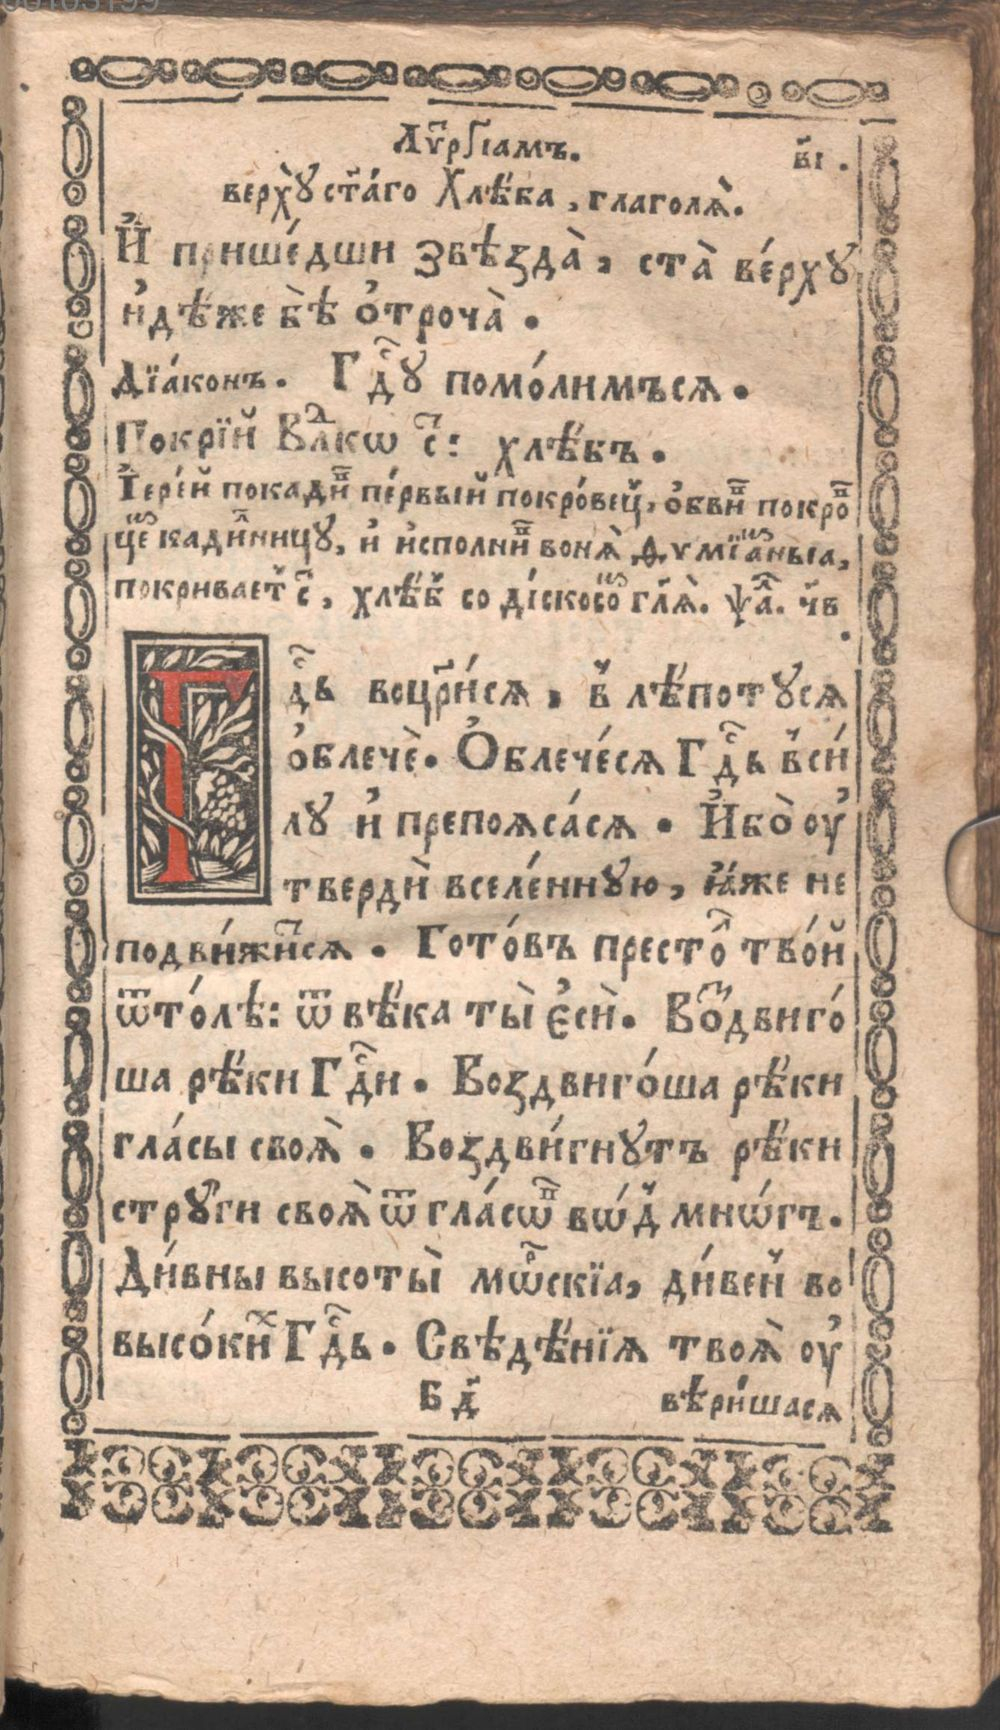 00103199
Лѵ҃рⷢ҇їамъ. в҃і.
верхꙋ̀ ст҃а́го Хлѣ́ба, глаголѧ̀.
И҆ прише́дши Ꙁвѣꙁда̀, ста̀ ве́рхꙋ
и҆дѣ́же бѣ̀ о҆троча̀.
Дїа́конъ. Гдⷭ҇ꙋ помо́лимъсѧ.
Покрі́й Влⷣкѡ с҃: хлѣ́бъ.
І҆ере́й покадиⷡ҇ пе́рвый покро́вец̾, ѡ҆бвиⷡ҇ покроⷡ҇
цеⷨ кади́лницꙋ, и҆ и҆сполниⷡ҇ вонѧ̀ Ѳѵмїаⷨныа,
покривает̾ с҃, хлѣ́б̾ со ді́скосоⷨ гл҃ѧ̀. ѱаⷧ҇. ч҃в
.
Гдⷭ҇ь воцр҃и́сѧ, в̾ лѣ́потꙋсѧ
о҆блечѐ. Ѻ҆блече́сѧ Гдⷭ҇ь в̾си́
лꙋ и҆ препоѧса́сѧ. И҆бо̀ оу҆
тверди̇̀ вселе́ннꙋю, ꙗ҆́же не
подви́житсѧ. Гото́въ престоⷧ҇ тво́й
ѿто́лѣ: ѿ вѣ́ка ты̀ є҆сѝ. Воⷥдвиго́
ша рѣ́ки Гдⷭ҇и. Воꙁдвиго́ша рѣ́ки
гла́сы своѧ̀. Воꙁдви́гнꙋтъ рѣ́ки
стрꙋги своѧ̀ ѿ гла́сѡⷡ҇ вѡ́д̾ мнѡ́гъ.
Ди́вны высоты̀ мѡⷬ҇скїа, ди́вен̾ во
высо́киⷯ Гдⷭ҇ь. Свѣдѣ́нїѧ твоѧ̀ оу҆
Б д҃ вѣри́шасѧ